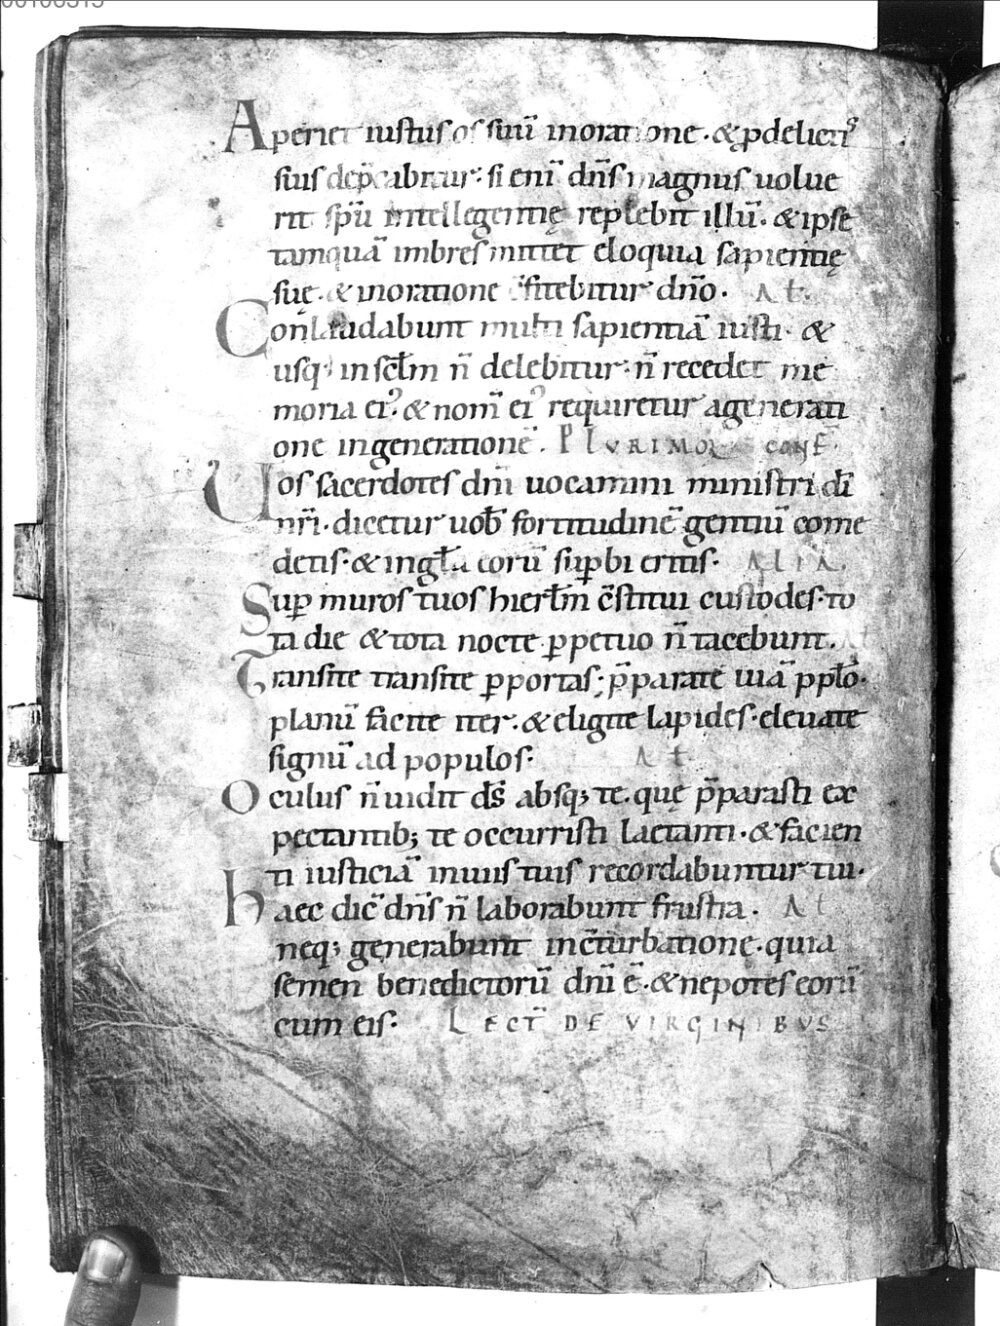 Aperiet iustus os suū inoratione · & ꝓdelictis
suis dep̄cabitur · si enī dn̄s magnus uolue
rit sp̄u intellegentię replebit illū · & ipse
tamquā imbres mittet eloquia sapientię
suę · & inoratione c̄fitebitur dn̄o · At
Conlaudabunt multi sapientiā iusti · &
usq; in sc̄lm n̄ delebitur · n̄ recedet me
moria ei' · & nom̄ ei' requiretur agenerati
one ingenerationē · PLURIMOꝜ CONF̄
Uos sacerdotes dn̄i uocamini ministri dī
nr̄i · dicetur uob̄ fortitudinē gentiū come
detis · & ingl̄a eorū suꝑbi eritis · ALIA ·
Suꝑ muros tuos hierl̄m c̄stitui custodes · to
ta die & tota nocte ꝑpetuo n̄ tacebunt · At
Transite transite ꝑportas · p̄parate uiā ppl̄o ·
planū facite iter · & eligite lapides · eleuate
signū ad populos · At
Oculus n̄ uidit ds̄ absq; te · que p̄parasti ex
pectantib; te occurristi laetanti · & facien
ti iusticiā inuiis tuis recordabuntur tui ·
haec dic̄ dn̄s n̄ laborabunt frustra · At
neq; generabunt inc̄turbatione · quia
semen benedictorū dn̄i ē · & nepotes eorū
cum eis · LECT̄ DE VIRGINIBUS